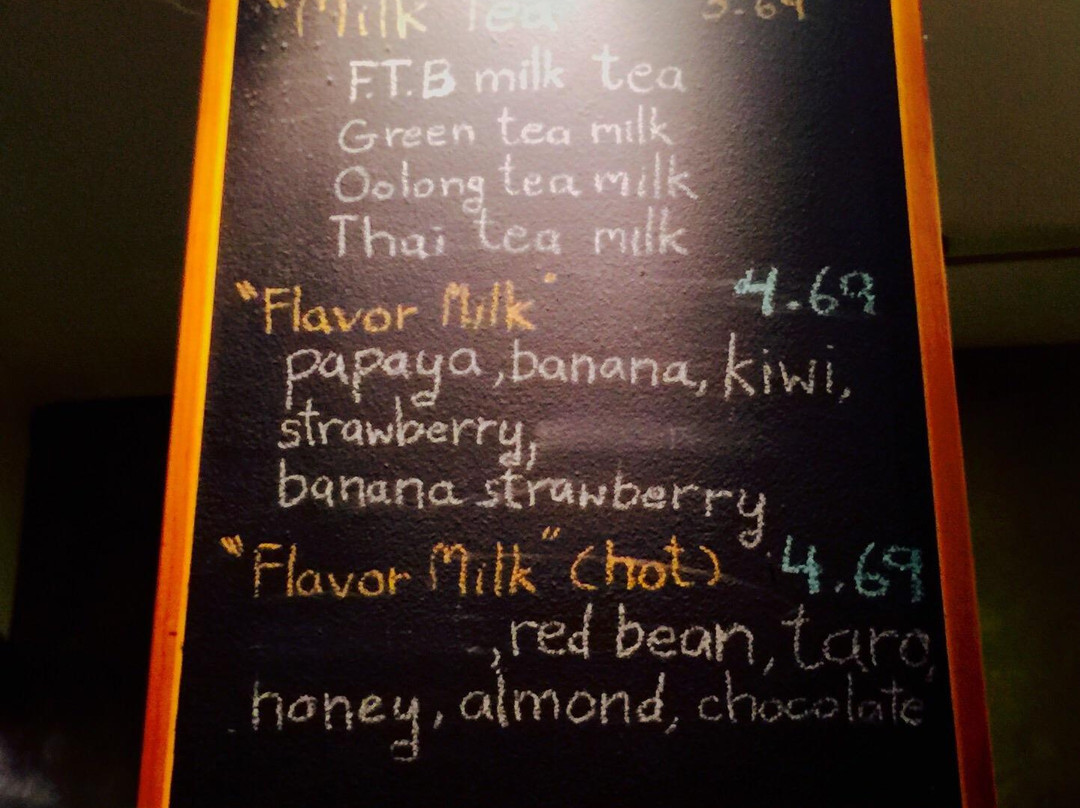 "Milk Tea" 3.69
F.T.B milk tea
Green tea milk
Oolong tea milk
Thai tea milk
"Flavor Milk" 4.69
papaya, banana, kiwi,
strawberry,
banana strawberry
"Flavor Milk" (hot) 4.69
, red bean, taro,
honey, almond, chocolate